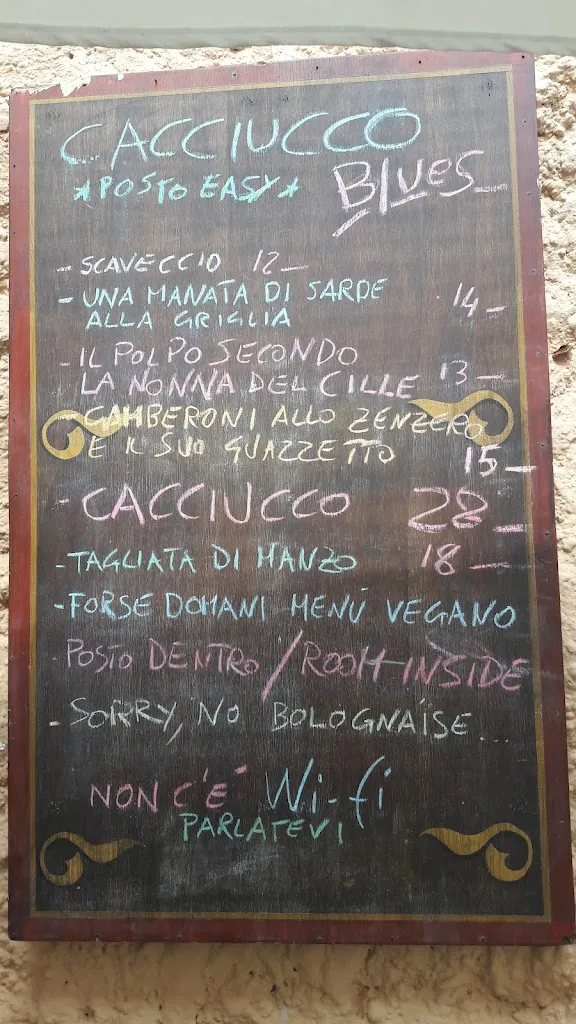 CACCIUCCO
*POSTO EASY*
BLUES_
- SCAVECCIO 12_
- UNA MANATA DI SARDE
ALLA GRIGLIA 14_
- IL POLPO SECONDO
LA NONNA DEL CILLE 13_
- GAMBERONI ALLO ZENZERO
E IL SUO GUAZZETTO 15_
- CACCIUCCO 28_
- TAGLIATA DI MANZO 18_
- FORSE DOMANI MENÙ VEGANO
- POSTO DENTRO/ROOM INSIDE
- SORRY, NO BOLOGNAISE...
NON C'È Wi-fi
PARLATEVI